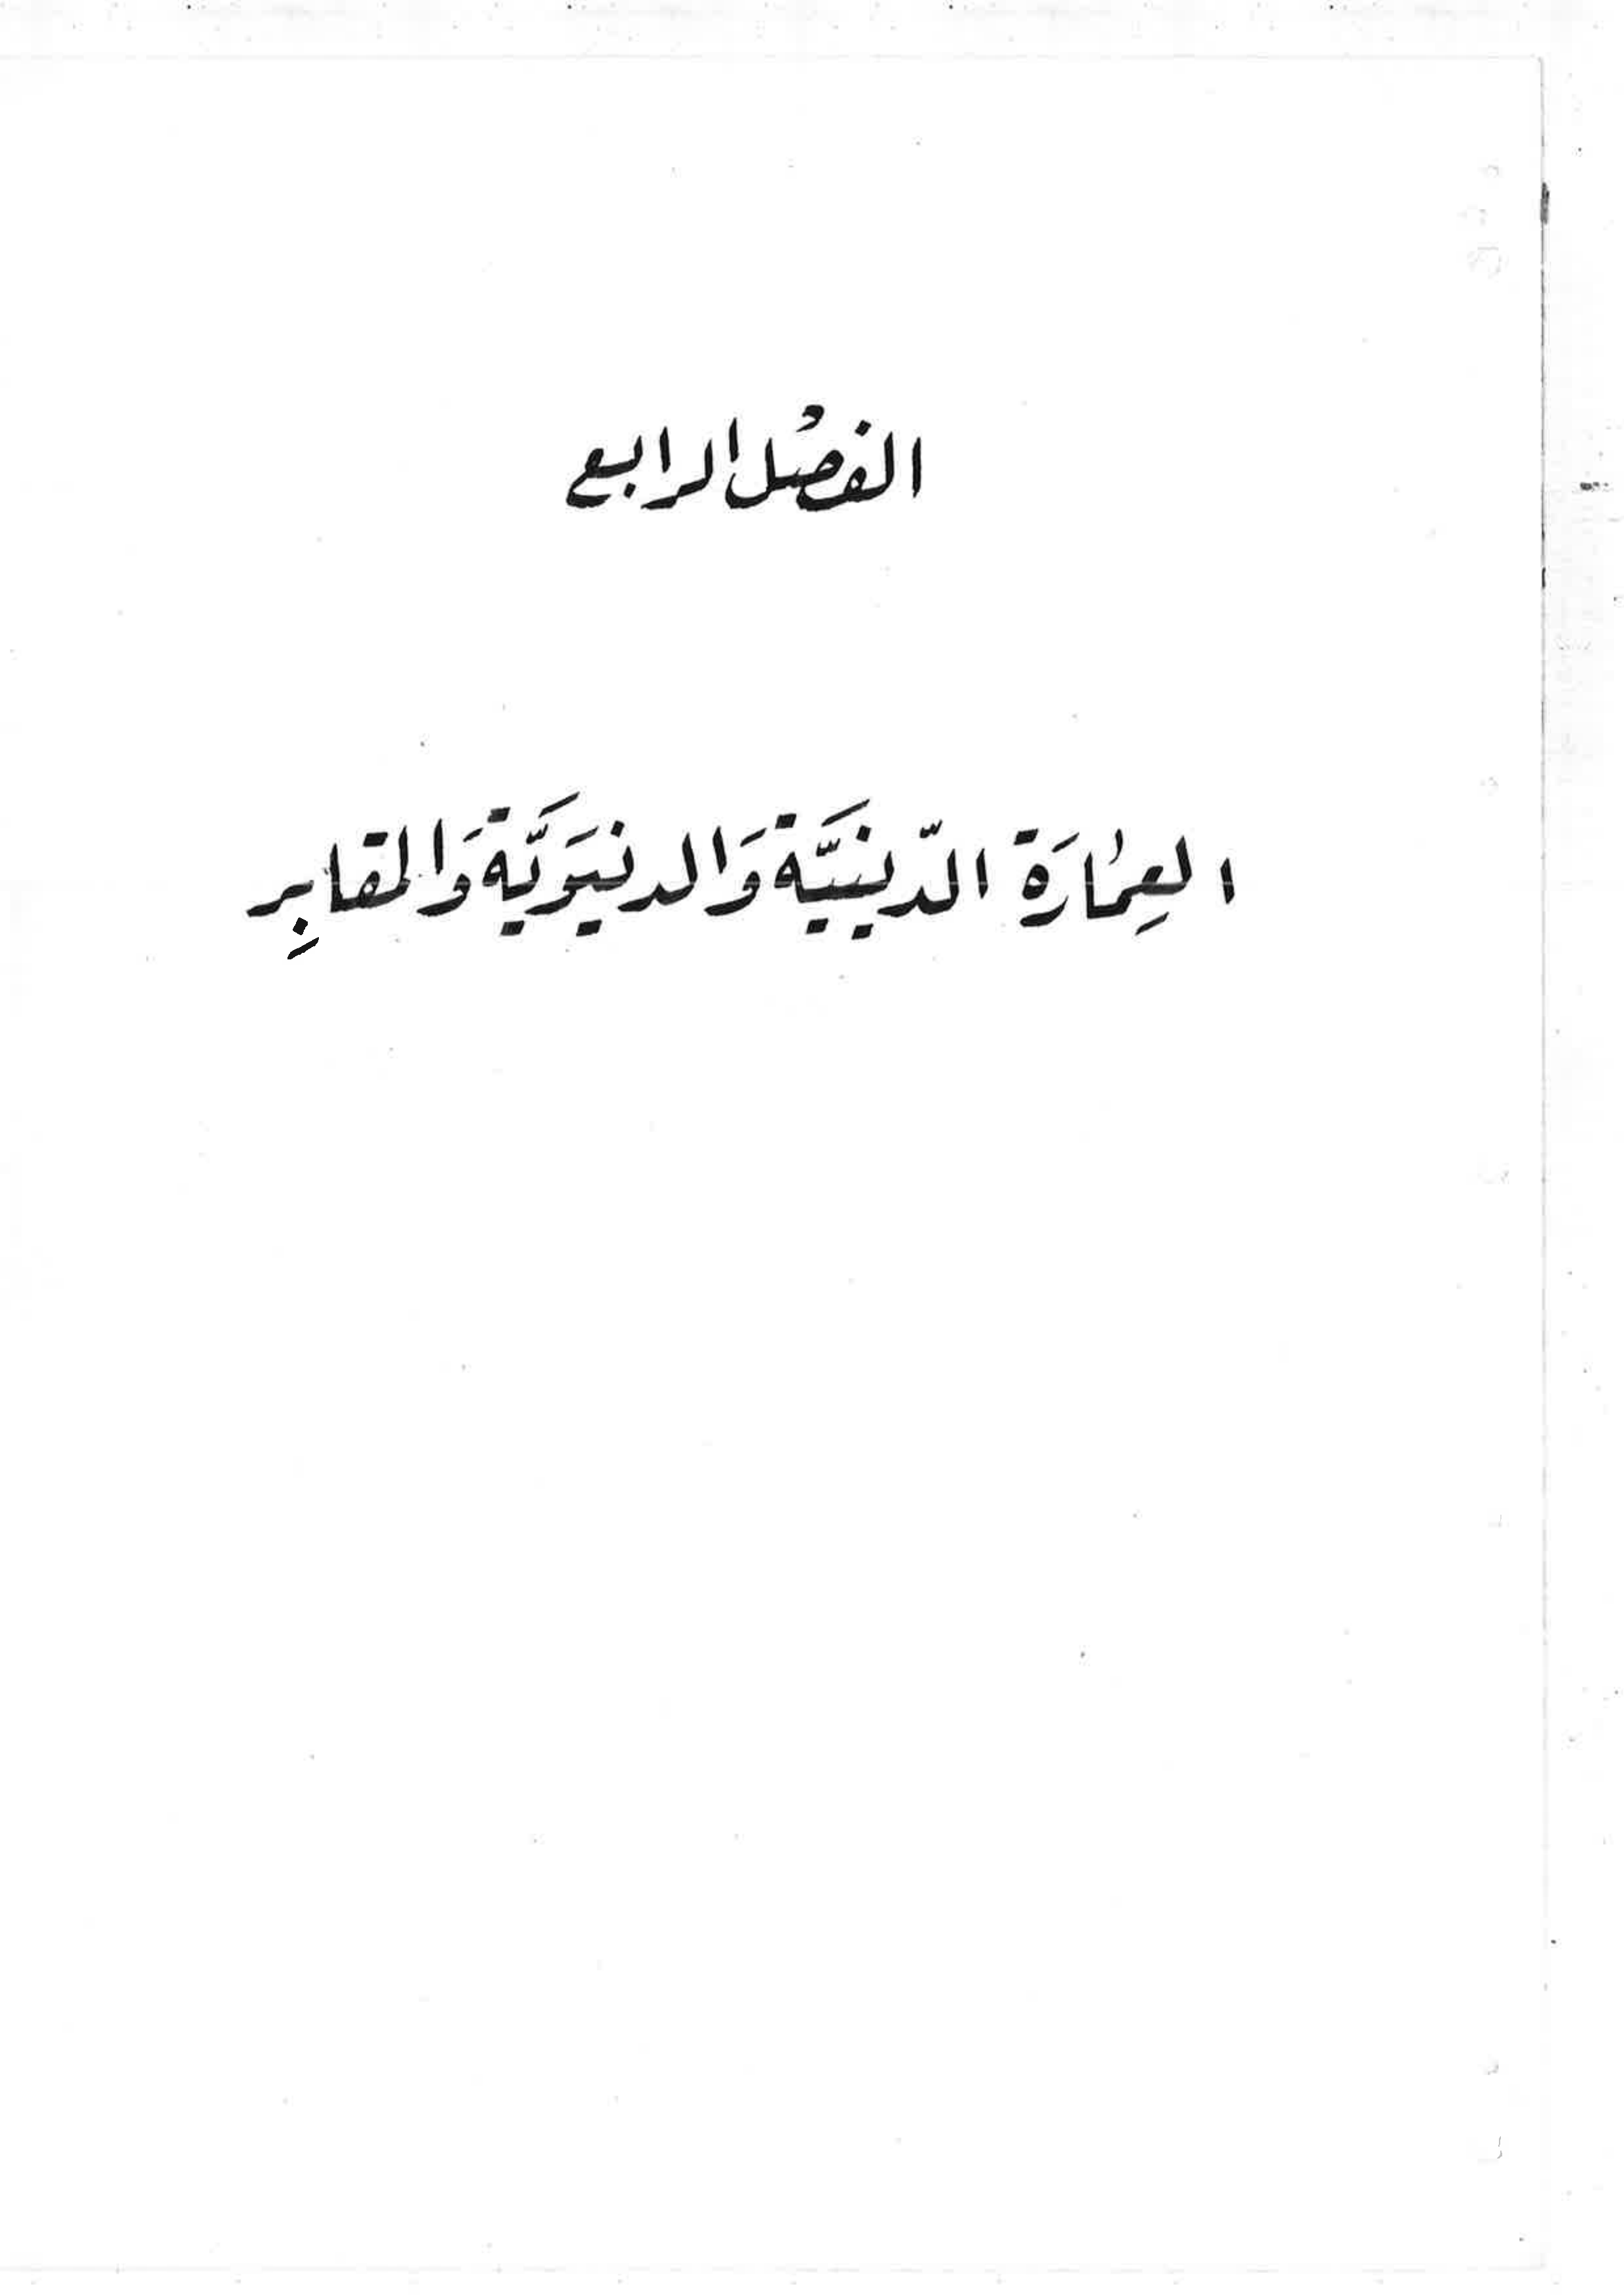 الفصْل الرابع
العِمٰارَة الدّينيَّة وَالدنيَوَيَّة وَالمقابِر